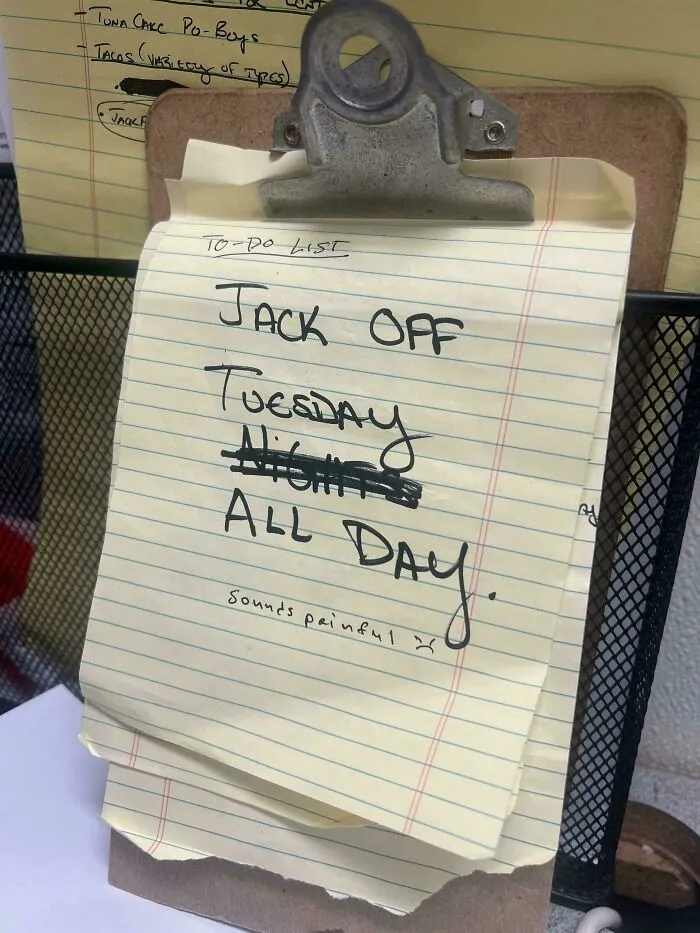 - Tuna Cake Po-Boys
- Tacos (Variety of Types)
To-Do List
Jack Off
Tuesday
Nights
All Day.
Sounds painful ☹